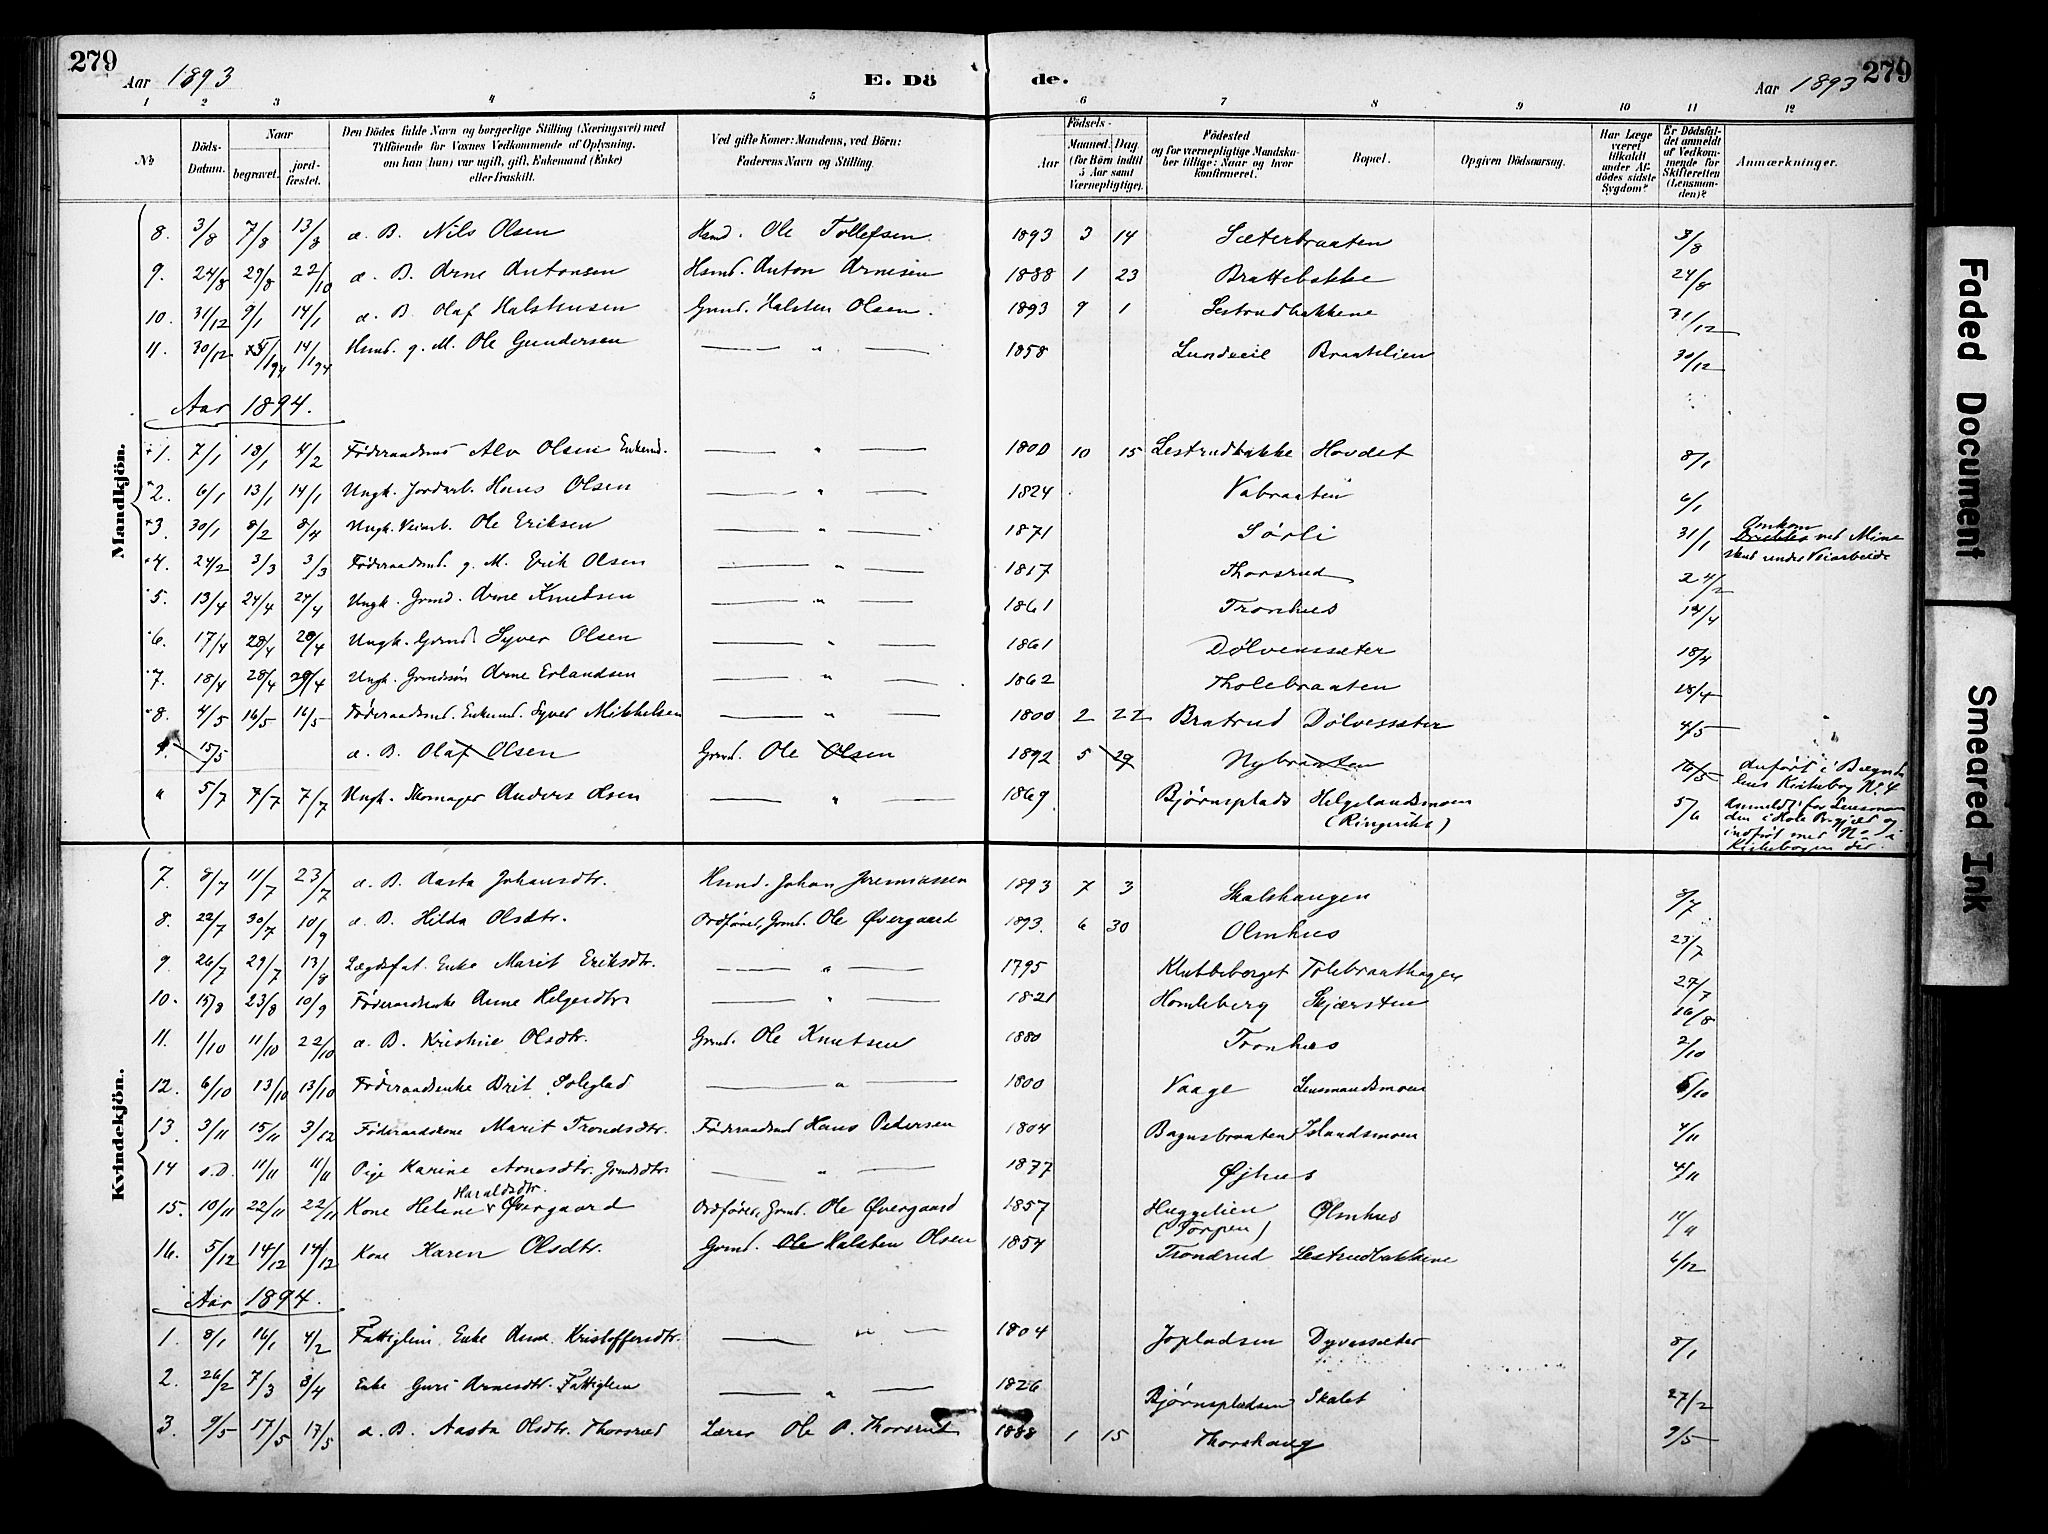 279
279
Aar 1893
E. Dö de.
Aar 1893
1 2 3 4 5 6 7 8 9 10 11 12
No
Döds-Datum.
Naar
begravet.
jord-fæstet.
Den Dödes fulde Navn og borgerlige Stilling (Næringsvei) med
Tilföiende for Voxnes Vedkommende af Oplysning.
om han (hun) var ugift, gift, Enkemand (Enke)
eller fraskilt.
Ved gifte Koner: Mandens, ved Börn:
Faderens Navn og Stilling.
Födsels-
Aar
Maaned. Dag.
(for Börn indtil
5 Aar samt
Værnepligtige).
Födested
og for værnepligtige Mandska-
ber tillige: Naar og hvor
konfirmeret.
Bopæl.
Opgiven Dödsaarsag.
Har Læge
været
tilkaldt
under Af-
dödes sidste
Sygdom?
Er Dödsfal-
det anmeldt
af Vedkom-
mende for
Skifteretten
(Lensman-
den)?
Anmærkninger.
Mandkjön.
8. 3/8 7/8 13/8 a. B. Nils Olsen Hsmd. Ole Tollefsen 1893 3 14 Sæterbraaten 3/8
9. 24/8 29/8 22/10 a. B. Arne Antonsen Hsmd. Anton Arnesen 1888 1 23 Brattebakke 24/8
10. 31/12 9/1 14/1 a. B. Olaf Halstensen Grmd. Halsten Olsen. 1893 9 1 Lestrudbakkene 31/12
11. 30/12 5/1 94 14/1 94 Hsmd. g. M. Ole Gundersen — " — 1858 Lundeeie Braatelien 30/12
Aar 1894.
1. 7/1 13/1 4/2 Föderaadsmd Alv Olsen Enkemd. — " — 1800 10 15 Lestrudbakke Hovdet 8/1
2. 6/1 13/1 14/1 Ungk. Jordarb. Hans Olsen — " — 1824 Vabraaten 6/1
3. 30/1 8/2 8/4 Ungk. Veiarb. Ole Eriksen — " — 1871 Sørli 31/1 Omkom ved Mine
skud under Veiarbeide
4. 24/2 3/3 3/3 Föderaadsmd. g. M. Erik Olsen — " — 1817 Thorsrud 24/2
5. 13/4 24/4 24/4 Ungk. Grmd. Arne Knutsen — " — 1861 Tronhus 14/4
6. 17/4 28/4 28/4 Ungk. Grmd. Syver Olsen — " — 1861 Dölvenssæter 18/4
7. 18/4 28/4 29/4 Ungk. Grmdsön Arne Erlandsen — " — 1862 Tholebraaten 18/4
8. 4/5 16/5 16/5 Föderaadsmd. Enkemd. Syver Mikkelsen — " — 1800 2 22 Bratrud Dölvesæter 4/5
9. 15/5 a. B. Olaf Olsen Grmd. Ole Olsen 1892 5 29 Nybraaten 16/5 Anført i Bægnd
lens Kirkebog No 4
" 5/7 7/7 7/7 Ungk. Skomager Anders Olsen — " — 1869 Bjørnsplads Helgelandsmoen
(Ringerike) 5/6 Anmeldt for Lensman
den i Hole og
indført med No i
Kirkebogen der.
Kvindekjön.
7. 8/7 11/7 23/7 a. B. Aasta Johansdtr. Hsmd. Johan Jeremiassen 1893 7 3 Skalshaugen 8/7
8. 22/7 30/7 10/9 a. B. Hilda Olsdtr. Ordfører, Grmd. Ole Øvergaard 1893. 6 30 Olmhus 23/7
9. 26/7 29/7 13/8 Lægdsfat. Enke Marit Eriksdtr. — " — 1795 Klubbeberget Tolebraathagen 27/7
10. 15/8 23/8 10/9 Föderaadsenke Anne Helgesdtr — " — 1821 Homleberg Skjærsten 16/8
11. 1/10 11/10 22/10 a. B. Kristine Olsdtr. Grmd. Ole Knutsen 1880 Tronhus 2/10
12. 6/10 13/10 13/10 Föderaadsenke Brit Soleglad — " — 1800 Vaage Lensmandsmoen 6/10
13. 3/11 15/11 3/12 Föderaadskone Marit Trondsdtr. Föderaadsmd Hans Pedersen 1804 Bagnsbraaten Islandsmoen 4/11
14 s.D. 11/11 11/11 Pige Karine Arnesdtr. Grmdsdtr. — " — 1877 Øjhus 4/11
15. 10/11 22/11 22/11 Kone Helene Haraldsdtr. Øvergaard Ordfører, Grmd. Ole Øvergaard 1857 Huggelien
(Torpen) Olmhus 11/11
16. 5/12 14/12 14/12 Kone Karen Olsdtr. Grmd. Ole Halsten Olsen 1854 Trondrud Lestrudbakkene 6/12
Aar 1894.
1. 8/1 16/1 4/2 Fattiglem Enke Anne Kristoffersdtr. — " — 1804 Jopladsen Dyvessæter 8/1
2. 26/2 7/3 8/4 Enke Guri Arnesdtr. Fattiglem — " — 1826 Bjørnspladsen Skalet 27/2
3. 9/5 17/5 17/5 a. B. Aasta Olsdtr. Thorsrud Lærer Ole O. Thorsrud 1888 1 15 Thorshaug 9/5
Faded Document
Smeared Ink